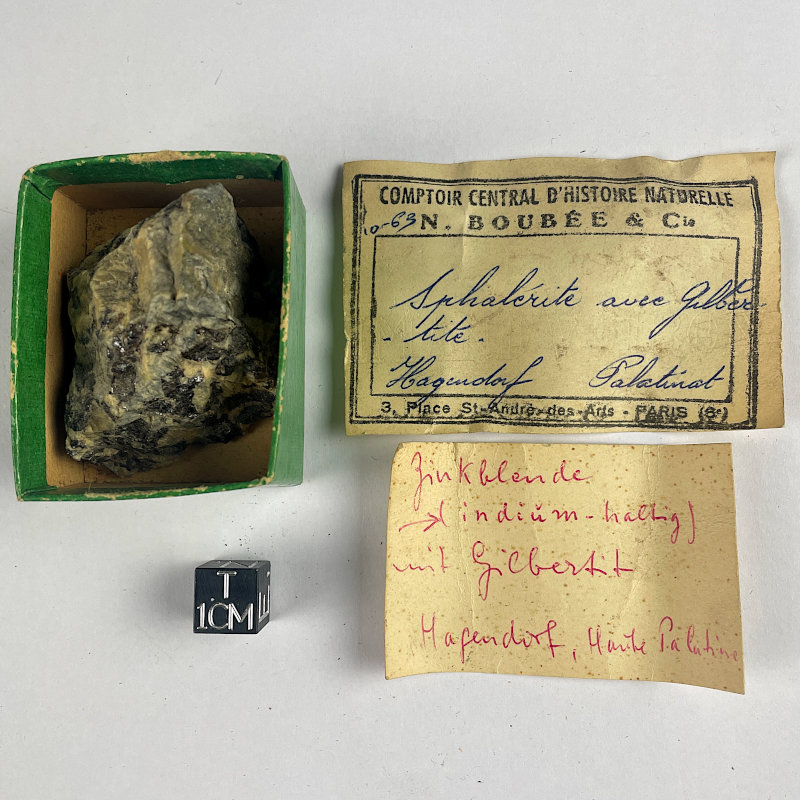 COMPTOIR CENTRAL D'HISTOIRE NATURELLE
10-63 N. BOUBÉE & Cie
Sphalérite avec Gilber-
- tite.
Hagendorf Palatinat
3, Place St-André-des-Arts - PARIS (6e)
Zinkblende
→ (indium-haltig)
mit Gilbertit
Hagendorf, Haute Palatine
T
1.CM